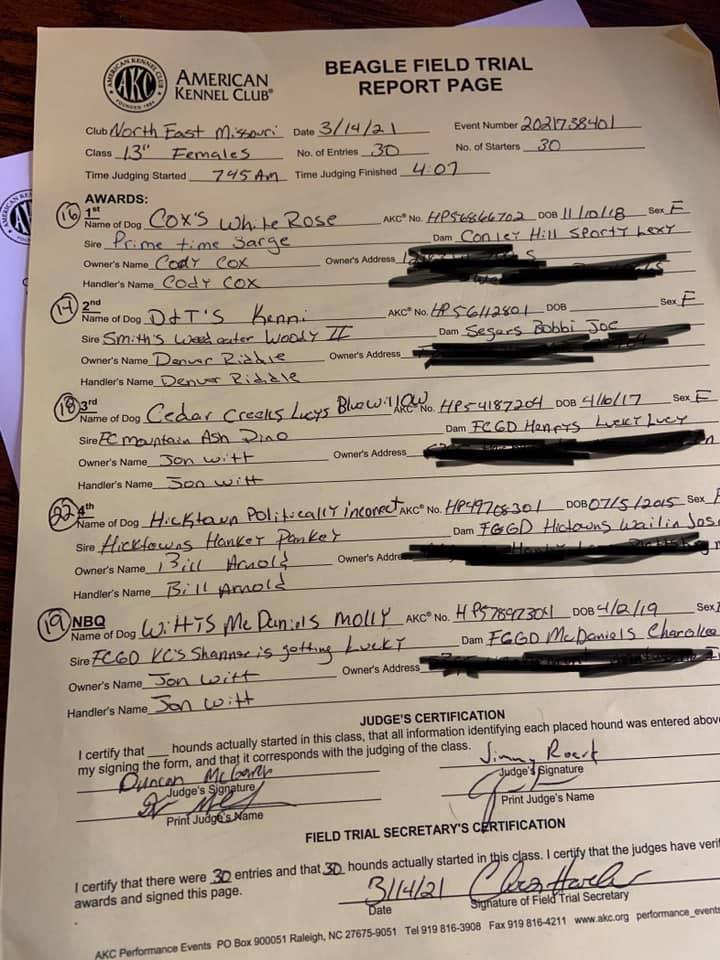 AMERICAN KENNEL CLUB
FOUNDED 1884
AKC
AMERICAN
KENNEL CLUB®
BEAGLE FIELD TRIAL
REPORT PAGE
Club North East Missouri Date 3/14/21 Event Number 2021738401
Class 13" Females No. of Entries 30 No. of Starters 30
Time Judging Started 745 AM Time Judging Finished 4:07
AWARDS:
16 1st
Name of Dog Cox's White Rose AKC® No. HP56866702 DOB 11/10/18 Sex F
Sire Prime time Sarge Dam Conley Hill Sporty Lexy
Owner's Name Cody Cox Owner's Address
Handler's Name Cody Cox
14 2nd
Name of Dog D&T'S Kenni AKC® No. HP56112801 DOB Sex F
Sire Smith's Weed eater Woody II Dam Segars Bobbi Joe
Owner's Name Denver Riddle Owner's Address
Handler's Name Denver Riddle
18 3rd
Name of Dog Cedar Creeks Lucys Bluewillow AKC® No. HP54187204 DOB 4/10/17 Sex F
Sire FC Mountain Ash Dino Dam FCGD Henrys Lucky Lucy
Owner's Name Jon Witt Owner's Address
Handler's Name Jon Witt
22 4th
Name of Dog Hicktown Politically incorrect AKC® No. HP49768301 DOB 07/5/2015 Sex F
Sire Hicktowns Hanker Pankey Dam FGGD Hictowns Wailin Jos
Owner's Name Bill Arnold Owner's Addre
Handler's Name Bill Arnold
19 NBQ
Name of Dog Witts McDaniels Molly AKC® No. HP57897301 DOB 4/2/19 Sex
Sire FCGD KC's Shannor is gotting Lucky Dam FGGD McDaniels Charokee
Owner's Name Jon Witt Owner's Address
Handler's Name Jon Witt
JUDGE'S CERTIFICATION
I certify that ___ hounds actually started in this class, that all information identifying each placed hound was entered above
my signing the form, and that it corresponds with the judging of the class.
Duncan Jimmy
Judge's Signature Judge's Signature
Print Judge's Name Print Judge's Name
FIELD TRIAL SECRETARY'S CERTIFICATION
I certify that there were 30 entries and that 30 hounds actually started in this class. I certify that the judges have verif
awards and signed this page.
3/14/21
Date Signature of Field Trial Secretary
AKC Performance Events PO Box 900051 Raleigh, NC 27675-9051 Tel 919 816-3908 Fax 919 816-4211 www.akc.org performance_events